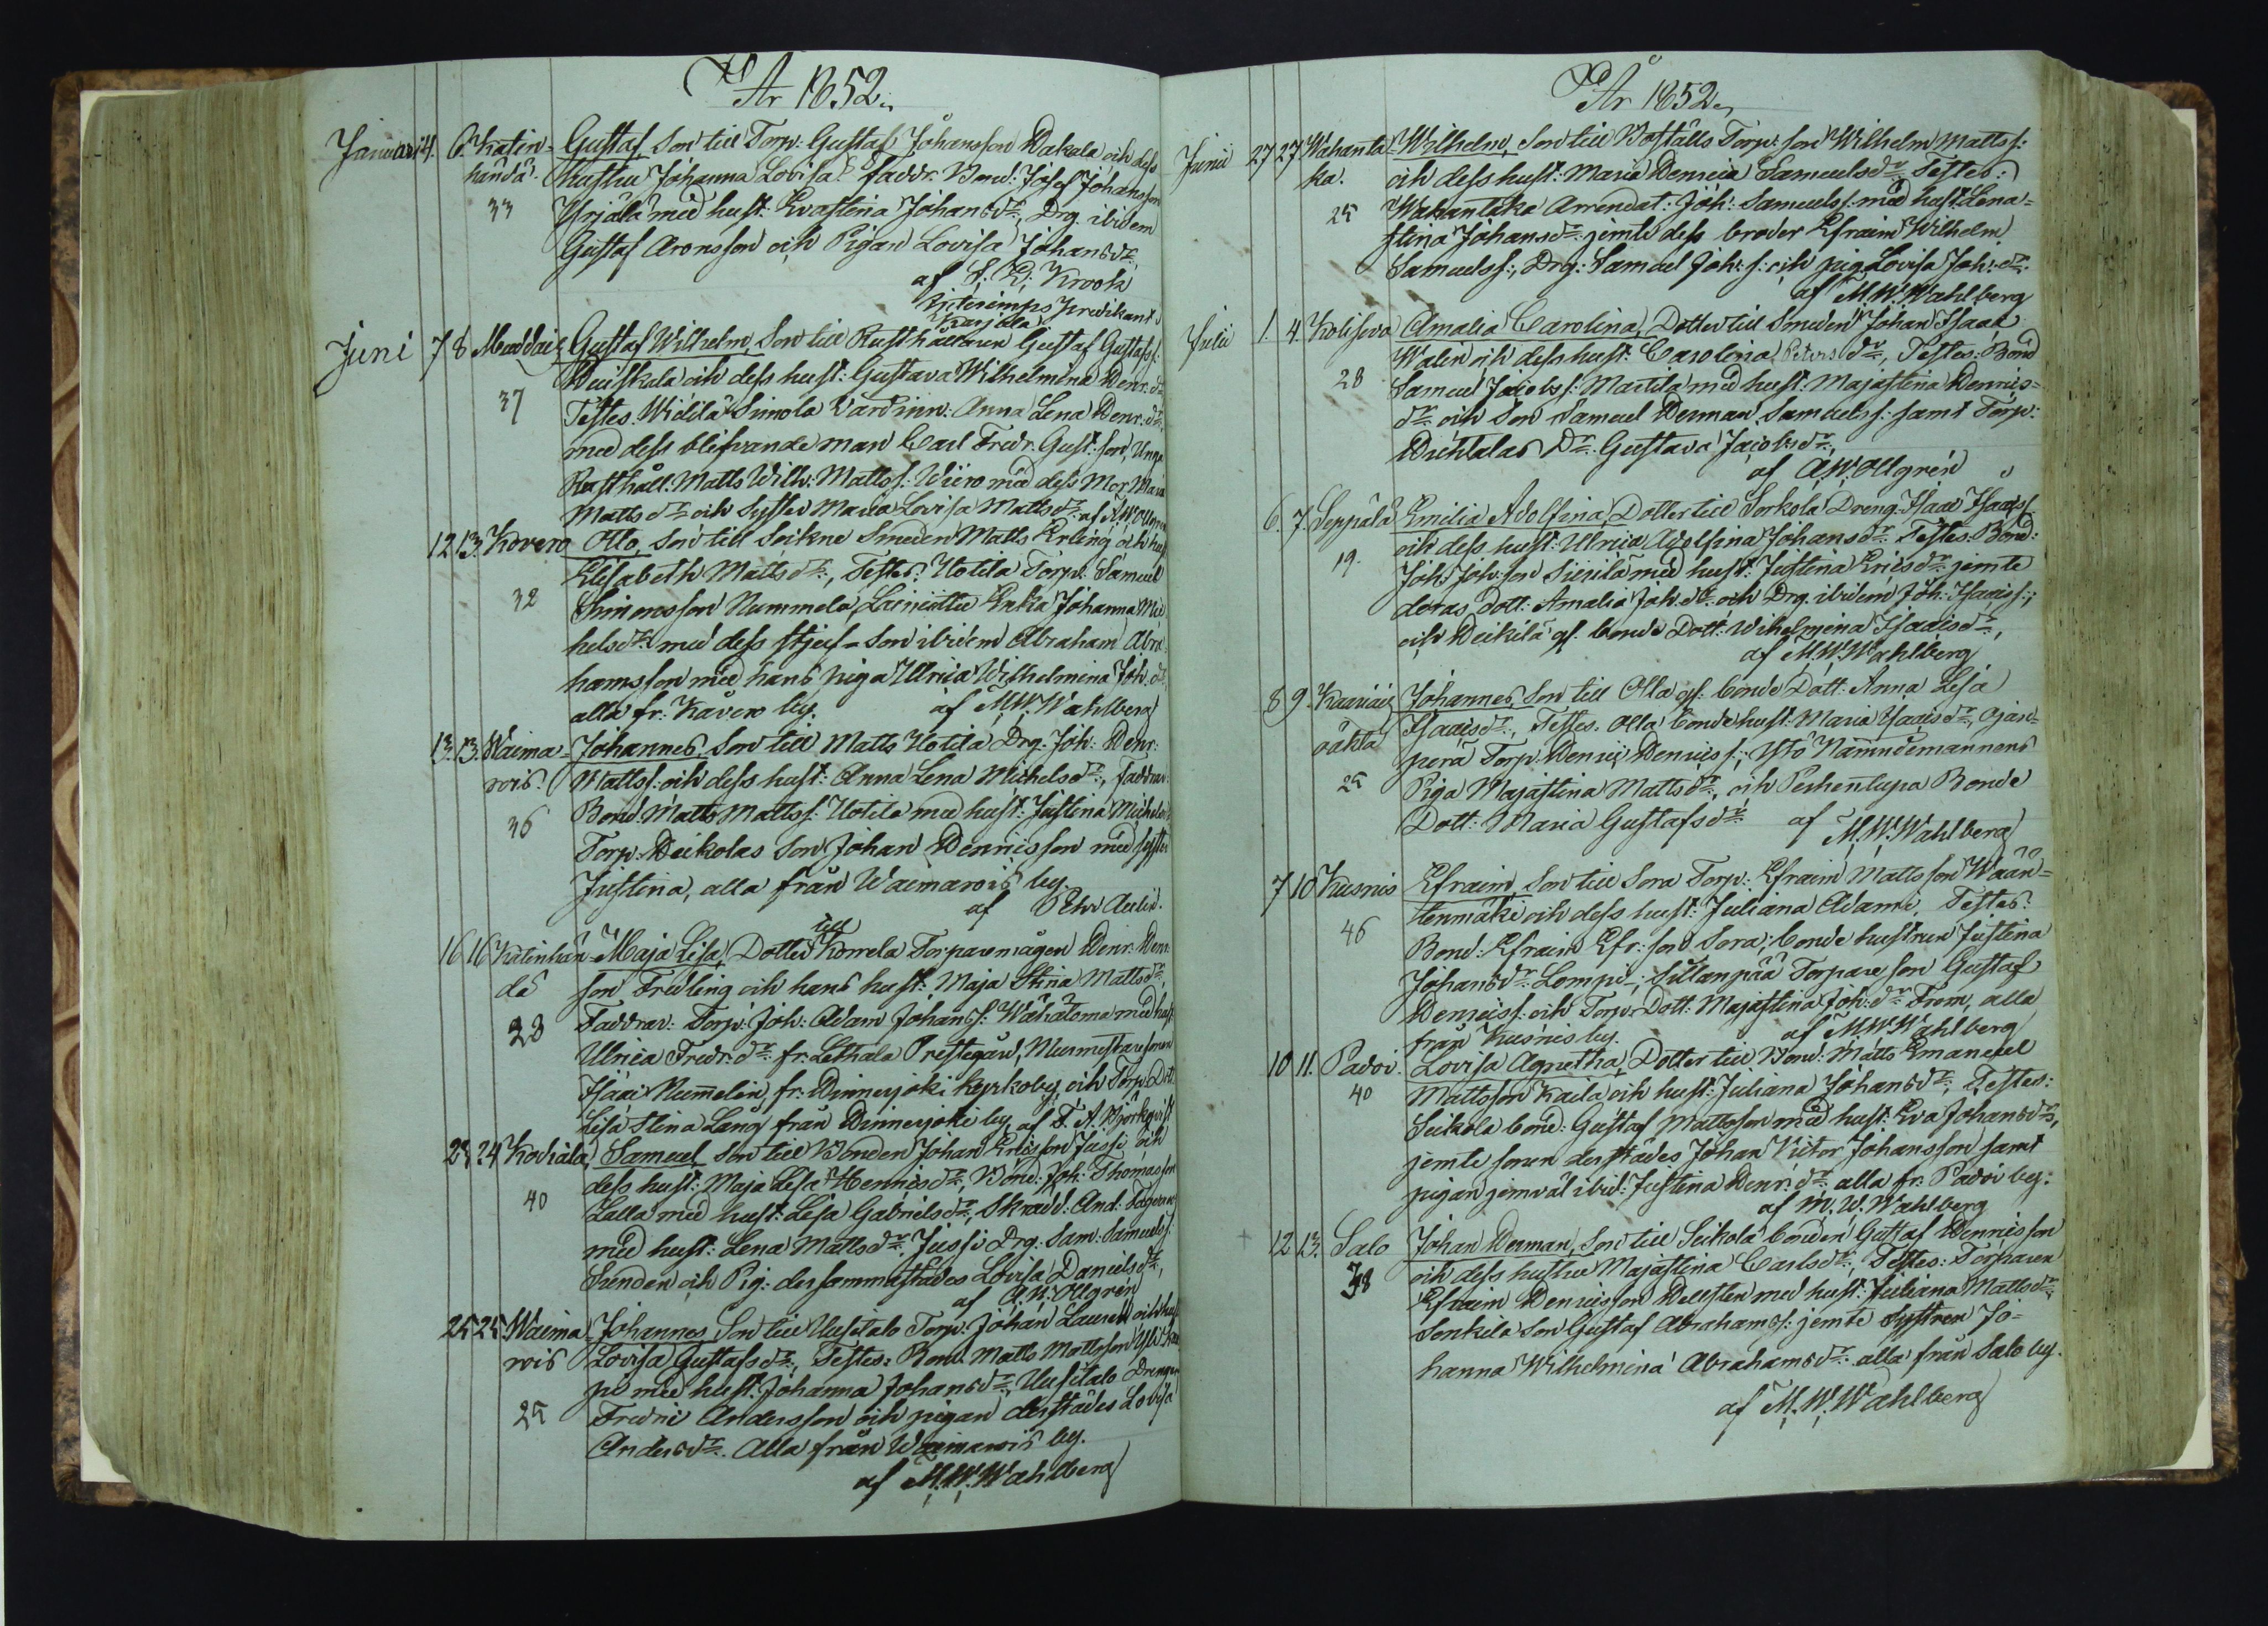 År 1852.
Januari 4. 6. Katin= Gustaf, Son till Torp: Gustaf Johansson Wakala och dess
händä. hustru Johanna Lovisa. Faddr. Bond: Josef Johansson
33 Yrjälä med hust: Evastina Johansdr, Drg. ibidem
Gustaf Aronsson och Pigan Lovisa Johansdr
af S. E. Krook
Predikant
Karjala.
Juni 7 8 Gustaf Wilhelm, Son till Rusthållaren Gustaf Gustafs:
och dess hust: Gustava Wilhelmina Henr.dr
37 Testes. Simola Värdinn: Anna Lena Henr:dr
med dess blifvande man Carl Fredr. Gust:son, Unga
Rusthåll. Matts Wilh: Matts s: med dess Mor Maria
Mattsdr och Syster Maria Lovisa Mattsdr af A.W. Ollgren
12 13. Kovero Otto, Son till Sockne Smeden Matts Erling och hust
Elisabeth Mattsdr, Testes: Uotila Torp: Samuel
32 Simonsson Nummela, Enka Johanna Mic
helsdr med dess stjuf=son ibidem Abraham Abra
hamsson med hans piga Ulrica Wilhelmina Joh. dr,
alla fr: Kåvero by. af M.W. Wahlberg
13. 13. Waima= Johannes, Son till Matts Uotila Drg. Joh: Henr:
rois. Matts s: och dess hust: Anna Lena Michelsdr, faddrar
36 Bond. Matts Matts s: Uotila med hust: Justina Michelsdr
Torp: Heikolas Son Johan Henricsson med syster
Justina, alla från Waimarois by.
af Ehr Aulin.
16 16 Katinhän= Maja Lisa, Dotter till Korrela Torparemågen Henr. Henr:
dä son Fredling och hans hust: Maja Stina Mattsdr,
28 Faddrar: Torp: Joh: Adam Johans s: Wähätorna med hust:
Ulrica Fredr.dr fr: Lethala Prestegård, Murmestare sonen
Isaac Numelin, fr: Hinnerjoki kyrkoby, och Torp: Dot:
Lisa Stina Lång från Hinnerjoki by af F. A. Björkqvist
23 24 Kodiala, Samuel Son till Bonden Johan Ericsson Jussi och
dess hust: Maja Lisa Henricsdr, Bond: Joh: Thomasson
40 Lalla med hust: Lisa Gabrielsdr, Skrädd: And: Fageroos
med hust: Lena Mattsdr Jussi Drg: Sam: Samuels s:
Sunden och Pig: dersammastädes Lovisa Danielsdr,
af A.W. Ollgrén
25 25 Waima= Johannes Son till Uusitalo Torp: Johan Laurell och hust
rois Lovisa Gustafsdr, Testes: Bond. Matts Mattsson
med hust: Johanna Johansdr, Uusitalo Drengen
25 Fredric Andersson och pigan derstädes Lovisa
Andersdr. Alla från Waimarois by.
af M.W. Wahlberg
År 1852.
Junii 27 27 Wahanta Wilhelm, Son till Boställs Torp: son Wilhelm Matts s:
ka. och dess hust: Maria Henrica Samuelsdr Testes:
25 Wahantaka Arrendat: Joh: Samuels s: med hust: Lena=
stina Johansdr: jemte dess broder Efraim Wilhelm
Samuels s:, Drg: Samuel Joh: s: och pig. Lovisa Joh: dr
af M.W. Wahlberg
Julii 1. 4. Amalia Carolina, Dotter till Smeden Johan Isaac
Walin och dess hust: Carolina Petersdr, Testes: Bond
28 Samuel Jacobs s: Martila med hust: Majastina Henrics=
dr och Son Samuel Herman Samuels s: samt Torp:
Dr Gustava Jacobsdr,
af A.W. Ollgrén
6. 7. Seppälä Emilia Adolfina, Dotter till Sorkola Dreng: Isaac Isaacs s:
och dess hust: Ulrica Adolfina Johansdr Testes. Bond:
19. Joh: Joh: son Sierilä med hust: Justina Ericsdr jemte
deras Dott: Amalia Joh: dr och Drg. ibidem Joh: Isaacs s:;
och Heikilä gl. bonde Dott: Wilhelmina Isaacsdr,
af M.W. Wahlberg
8 9. Johannes, Son till Olla gl: bonde Dott: Anna Lisa
Isaacsdr, Testes. Olla bonde hust: Maria Isaacsdr,
perä Torp: Henric Henrics s:; Nämndemannens
25 Piga Majastina Mattsdr, och Bonde
Dott: Maria Gustafsdr af M.W. Wahlberg
7 10 Kusnis Efraim, Son till Sora Torp: Efraim Mattsson Wään=
tenmäki och dess hust: Juliana Adami, Testes:
46 Bond: Efraim Efr: son Sora; bonde hustrun Justina
Johansdr Lempi; Sillanpää Torpare son Gustaf
Henrics s: och Torp: Dott: Majastina Joh: dr From, alla
från Kusnis by. af M.W. Wahlberg
10 11. Padoi. Lovisa Agnetha, Dotter till Bond: Matts Emanuel
40 Mattsson Kaila och hust: Juliana Johansdr, Testes:
Seikola bond: Gustaf Mattsson med hust: Eva Johansdr,
jemte sonen derstädes Johan Victor Johansson samt
pigan jemväl ibid: Justina Henr: dr alla fr. Padoi by.
af M.W. Wahlberg
12 13. Salo Johan Herman, Son till Seikola bonden Gustaf Henricsson
38 och dess hustru Majastina Carlsdr, Testes: Torparen
Efraim Henricsson Hellsten med hust: Juliana Mattsdr,
Sonkila Son Gustaf Abrahams s: jemte Systren Jo=
hanna Wilhelmina Abrahamsdr alla från Salo by.
af M.W. Wahlberg